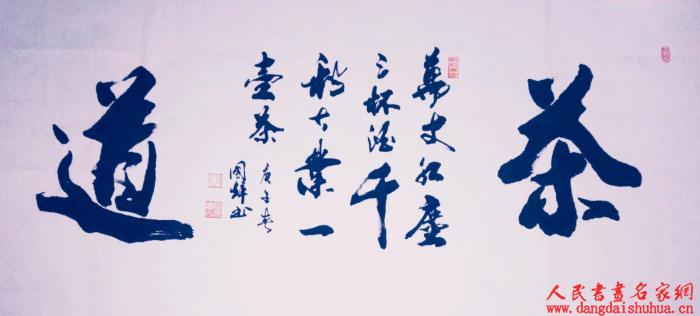 茶
萬丈红塵
三杯酒千
秋大業一
壺茶
庚子春
道
人民書畫名家網
www.dangdaishuhua.cn